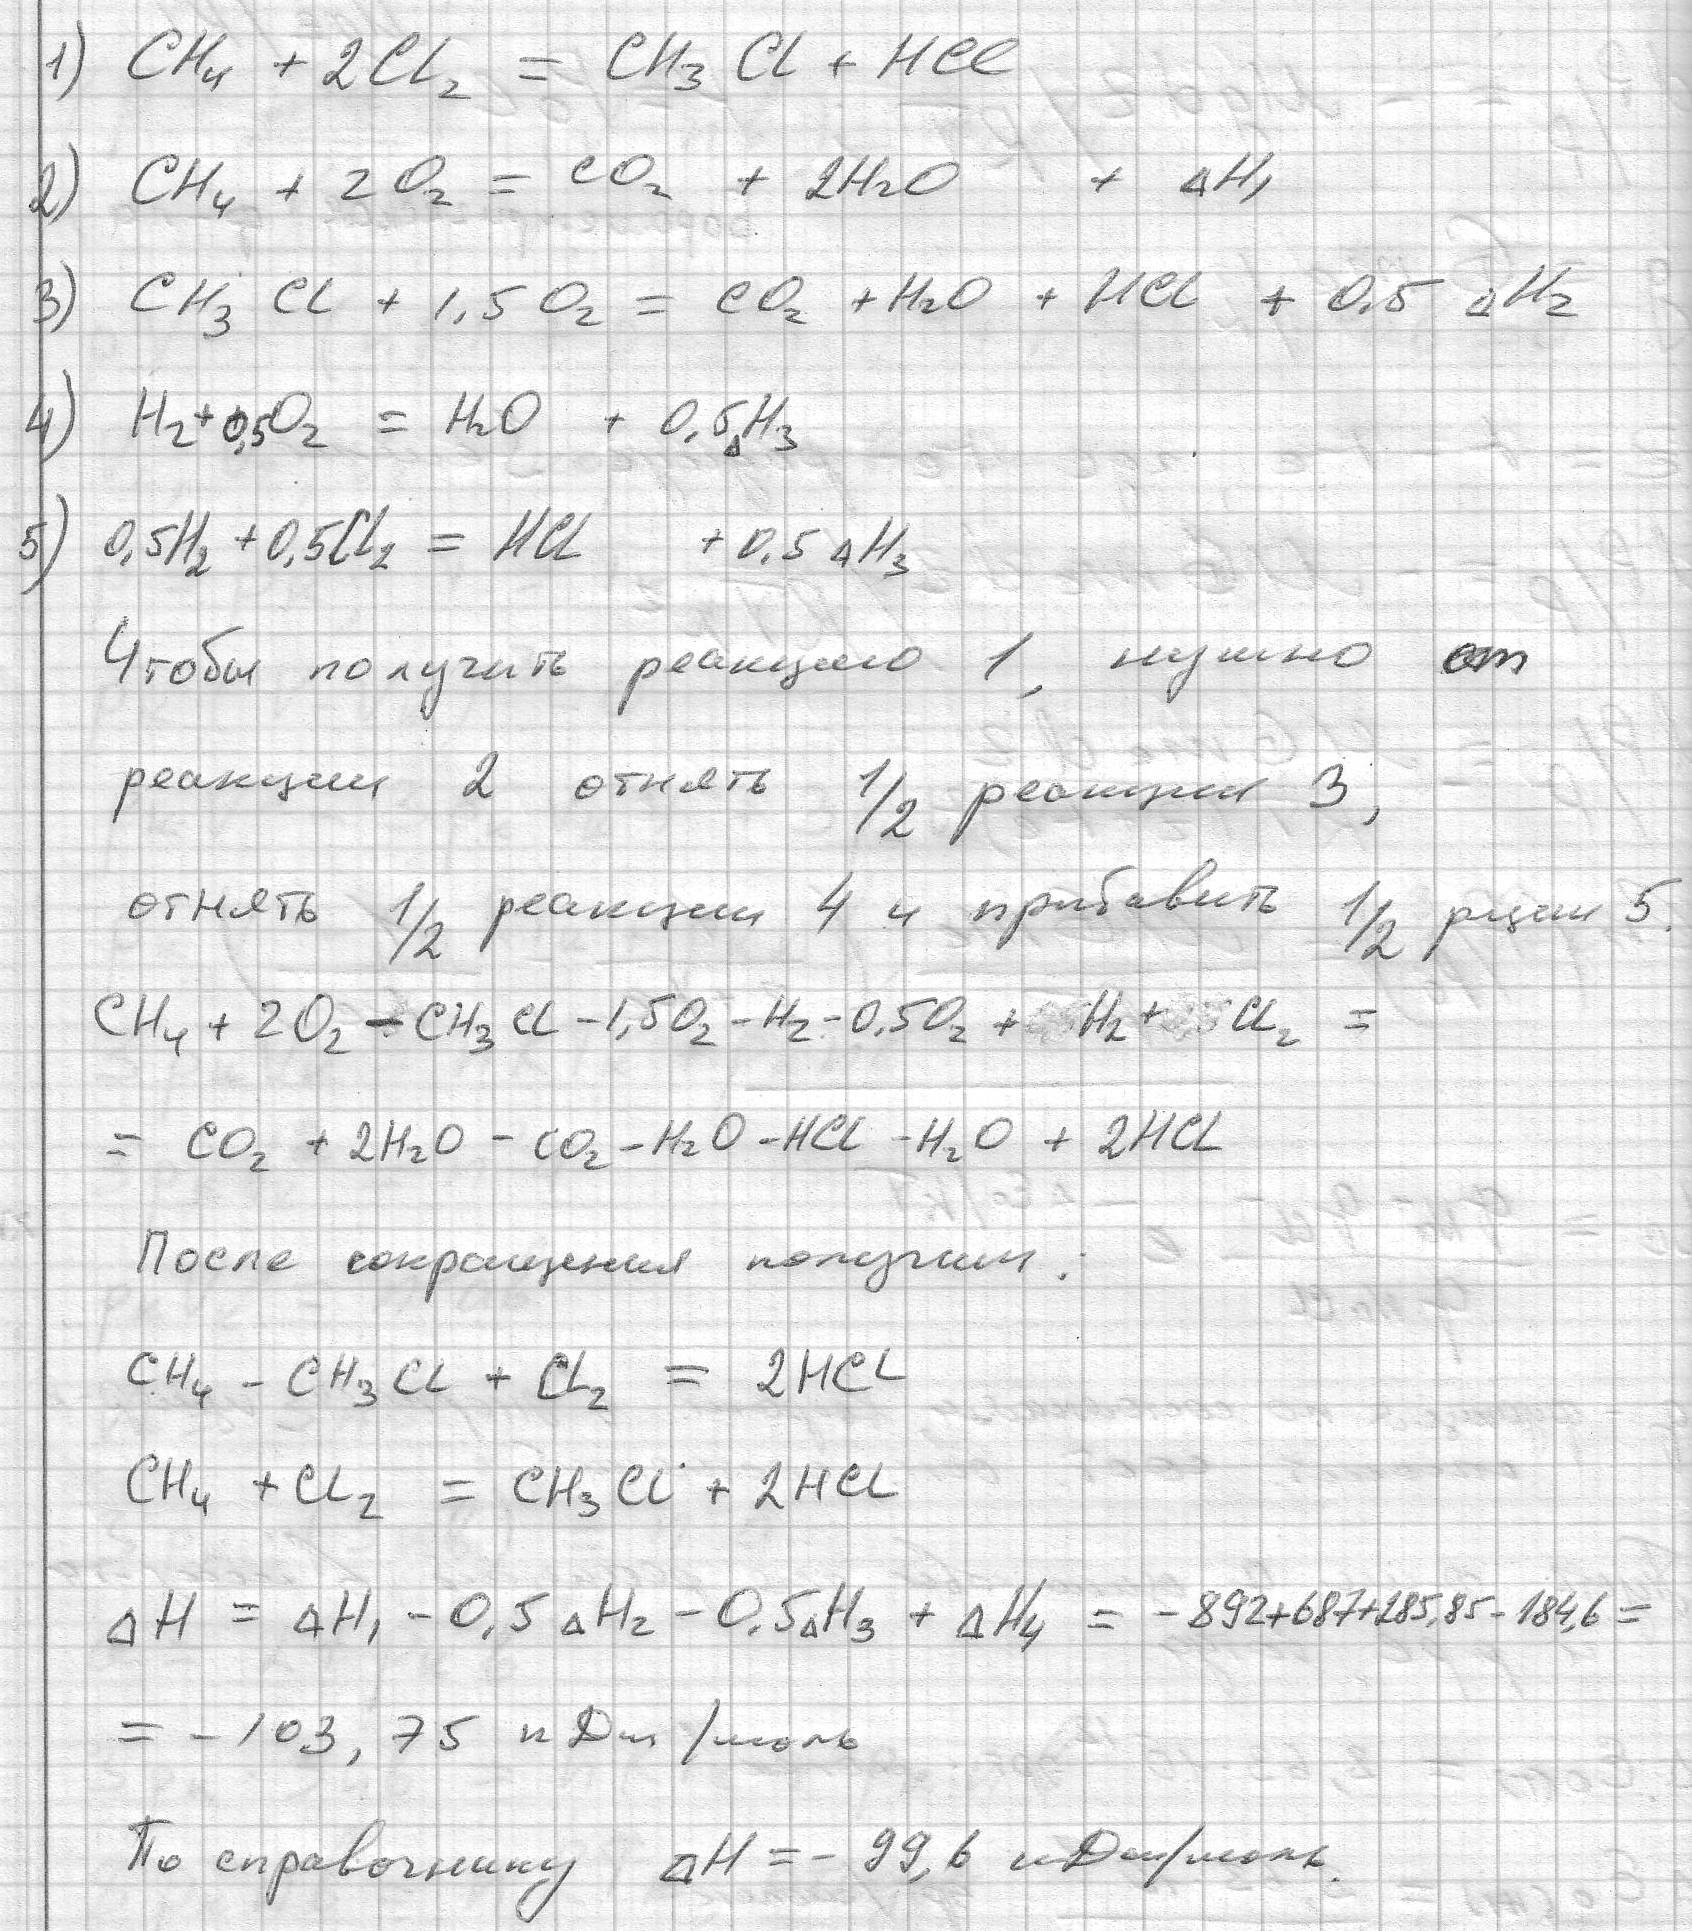 1) CH₄ + 2Cl₂ = CH₃Cl + HCl
2) CH₄ + 2O₂ = CO₂ + 2H₂O + ΔH₁
3) CH₃Cl + 1,5O₂ = CO₂ + H₂O + HCl + 0.5 ΔH₂
4) H₂ + 0,5O₂ = H₂O + 0,5ΔH₃
5) 0,5H₂ + 0,5Cl₂ = HCl + 0.5 ΔH₃
Чтобы получить реакцию 1, нужно от
реакции 2 отнять 1/2 реакции 3,
отнять 1/2 реакции 4 и прибавить 1/2 рции 5.
CH₄ + 2O₂ - CH₃Cl - 1,5O₂ - H₂ - 0.5O₂ + H₂ + Cl₂ =
= CO₂ + 2H₂O - CO₂ - H₂O - HCl - H₂O + 2HCl
После сокращения получим:
CH₄ - CH₃Cl + Cl₂ = 2HCl
CH₄ + Cl₂ = CH₃Cl + 2HCl
ΔH = ΔH₁ - 0,5 ΔH₂ - 0.5ΔH₃ + ΔH₄ = -892+687+285,85-184,6 =
= -103,75 кДж/моль
По справочнику ΔH = - 99,6 кДж/моль.